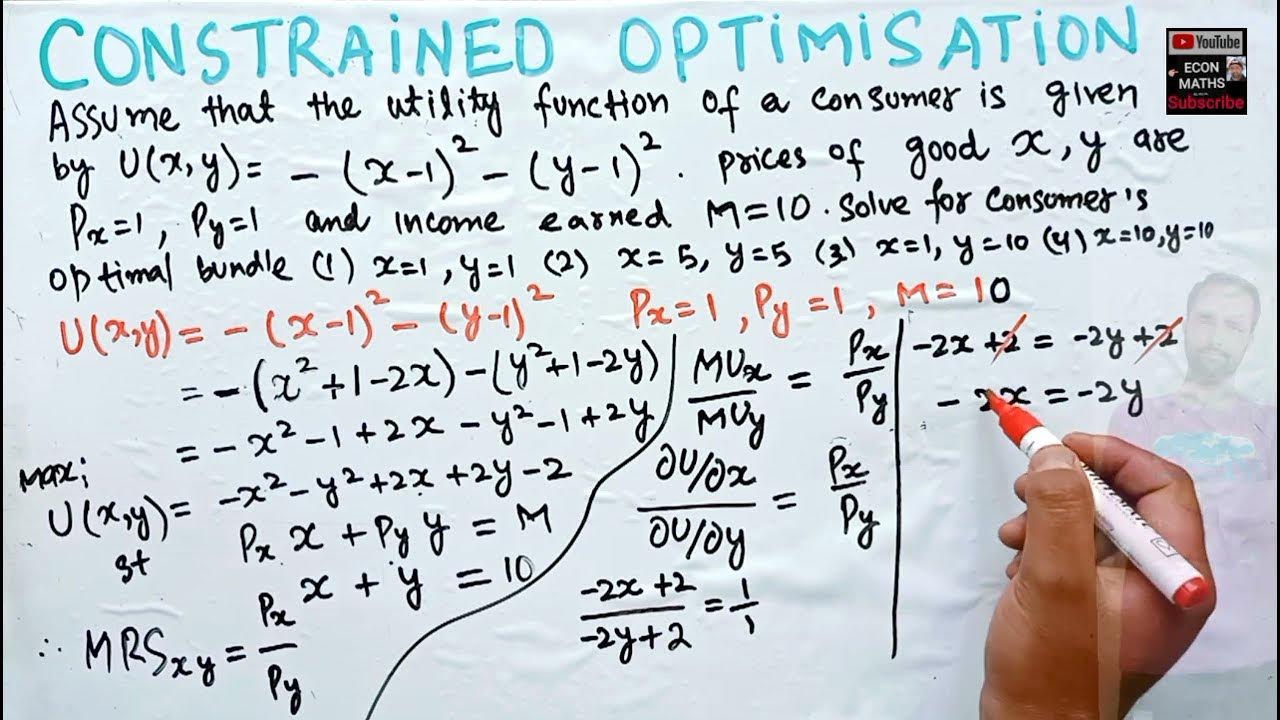 CONSTRAINED OPTIMISATION
YouTube
ECON
MATHS
Subscribe
Assume that the utility function of a consumer is given
by U(x,y)= -(x-1)² - (y-1)². Prices of good x, y are
Px=1, Py=1 and income earned M=10. Solve for consumer's
optimal bundle (1) x=1, y=1 (2) x=5, y=5 (3) x=1, y=10 (4) x=10, y=10
U(x,y)= -(x-1)² - (y-1)² Px=1, Py=1, M=10
= -(x²+1-2x)-(y²+1-2y)
= -x²-1+2x-y²-1+2y
Max;
U(x,y)= -x²-y²+2x+2y-2
st
Px x + Py y = M
x + y = 10
∴ MRSxy = Px/Py
MUx/MUy = Px/Py
∂U/∂x / ∂U/∂y = Px/Py
-2x+2/-2y+2 = 1/1
-2x+2 = -2y+2
-2x = -2y